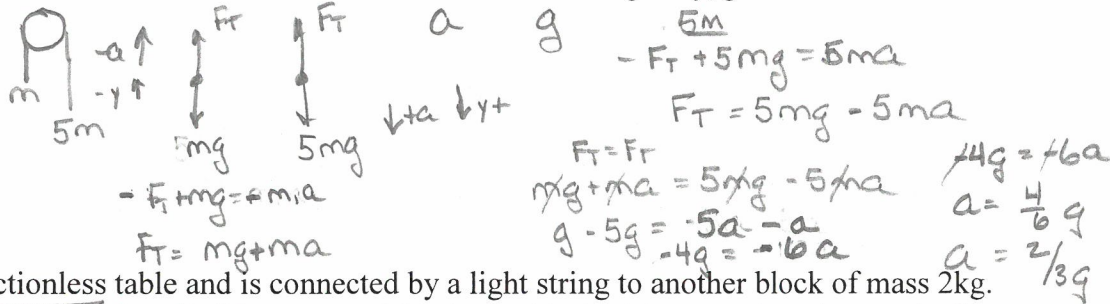 F_T F_T a g 5m
-a ↑
m -y ↑
5m
mg 5mg ↓+a ↓y+
- F_T + 5mg = 5ma
F_T = 5mg - 5ma
- F_T + mg = - m,a
F_T = mg + ma
F_T = F_T
mg + ma = 5mg - 5ma
g - 5g = -5a - a
-4g = -6a
-4g = -6a
a = 4/6 g
a = 2/3 g
ctionless table and is connected by a light string to another block of mass 2kg.